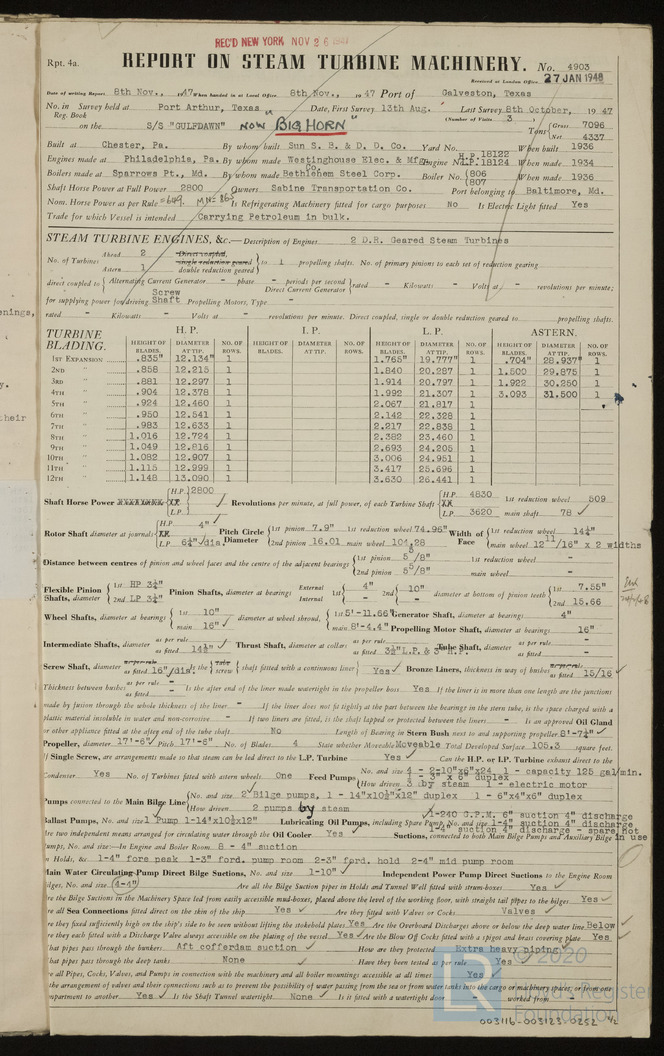 REC'D NEW YORK NOV 26 1947
Rpt. 4a.
REPORT ON STEAM TURBINE MACHINERY. No. 4903
Received at London Office 27 JAN 1948
Date of writing Report 8th Nov., 1947 When handed in at Local Office 8th Nov., 1947 Port of Galveston, Texas
No. in Reg. Book Survey held at Port Arthur, Texas Date, First Survey 13th Aug. Last Survey 8th October, 1947
(Number of Visits 3)
on the S/S "GULFDAWN" NOW "BIG HORN" Tons Gross 7096 Net 4337
Built at Chester, Pa. By whom built Sun S. B. & D. D. Co. Yard No. When built 1936
Engines made at Philadelphia, Pa. By whom made Westinghouse Elec. & Mfg. Co. Engine No. H.P. 18122 L.P. 18124 When made 1934
Boilers made at Sparrows Pt., Md. By whom made Bethlehem Steel Corp. Boiler No. (806 (807 When made 1936
Shaft Horse Power at Full Power 2800 Owners Sabine Transportation Co. Port belonging to Baltimore, Md.
Nom. Horse Power as per Rule Is Refrigerating Machinery fitted for cargo purposes No Is Electric Light fitted Yes
Trade for which Vessel is intended Carrying Petroleum in bulk.
STEAM TURBINE ENGINES, &c.—Description of Engines 2 D.R. Geared Steam Turbines
No. of Turbines Ahead 2 Astern 1 Direct coupled, single reduction geared double reduction geared to 1 propelling shafts. No. of primary pinions to each set of reduction gearing
direct coupled to Alternating Current Generator - phase - periods per second Direct Current Generator rated - Kilowatts - Volts at - revolutions per minute;
for supplying power for driving Screw Shaft Propelling Motors, Type -
rated - Kilowatts - Volts at - revolutions per minute. Direct coupled, single or double reduction geared to propelling shafts.
TURBINE BLADING. H. P. I. P. L. P. ASTERN.
HEIGHT OF BLADES. DIAMETER AT TIP. NO. OF ROWS. HEIGHT OF BLADES. DIAMETER AT TIP. NO. OF ROWS. HEIGHT OF BLADES. DIAMETER AT TIP. NO. OF ROWS. HEIGHT OF BLADES. DIAMETER AT TIP. NO. OF ROWS.
1ST EXPANSION .835" 12.134" 1 1.765" 19.777" 1 .704" 28.937" 1
2ND " .858 12.215 1 1.840 20.287 1 1.500 29.875 1
3RD " .881 12.297 1 1.914 20.797 1 1.922 30.250 1
4TH " .904 12.378 1 1.992 21.307 1 3.093 31.500 1
5TH " .924 12.460 1 2.067 21.817 1
6TH " .950 12.541 1 2.142 22.328 1
7TH " .983 12.633 1 2.217 22.838 1
8TH " 1.016 12.724 1 2.382 23.460 1
9TH " 1.049 12.816 1 2.693 24.205 1
10TH " 1.082 12.907 1 3.006 24.951 1
11TH " 1.115 12.999 1 3.417 25.696 1
12TH " 1.148 13.090 1 3.630 26.441 1
Shaft Horse Power H.P. 2800 L.P. Revolutions per minute, at full power, of each Turbine Shaft H.P. 4830 L.P. 3620 1st reduction wheel 509 main shaft 78
Rotor Shaft diameter at journals H.P. 4" L.P. 6¼"/dia. Pitch Circle Diameter 1st pinion 7.9" 2nd pinion 16.01 1st reduction wheel 74.95" main wheel 104.28 Width of Face 1st reduction wheel 14¼" main wheel 12 11/16" x 2 widths
Distance between centres of pinion and wheel faces and the centre of the adjacent bearings 1st pinion 5 5/8" 2nd pinion 5 5/8" 1st reduction wheel - main wheel -
Flexible Pinion Shafts, diameter 1st HP 3¼" 2nd LP 3¼" Pinion Shafts, diameter at bearings External Internal 1st 4" 2nd 10" diameter at bottom of pinion teeth 1st 7.55" 2nd 15.66
Wheel Shafts, diameter at bearings 1st 10" main 16" diameter at wheel shroud, 1st 5'-11.66" main 8'-4.4" Generator Shaft, diameter at bearings 4" Propelling Motor Shaft, diameter at bearings 16"
Intermediate Shafts, diameter as per rule as fitted 14¼" Thrust Shaft, diameter at collars as per rule as fitted 3½" L.P. & 3" H.P. Tube Shaft, diameter as per rule as fitted -
Screw Shaft, diameter as per rule as fitted 16"/dia. Is the tube screw shaft fitted with a continuous liner Yes Bronze Liners, thickness in way of bushes as per rule as fitted 15/16
Thickness between bushes as per rule as fitted - Is the after end of the liner made watertight in the propeller boss Yes If the liner is in more than one length are the junctions
made by fusion through the whole thickness of the liner - If the liner does not fit tightly at the part between the bearings in the stern tube, is the space charged with a
plastic material insoluble in water and non-corrosive - If two liners are fitted, is the shaft lapped or protected between the liners - Is an approved Oil Gland
or other appliance fitted at the after end of the tube shaft No Length of Bearing in Stern Bush next to and supporting propeller 8'-7¼"
Propeller, diameter 17'-6" Pitch 17'-6" No. of Blades 4 State whether Moveable Moveable Total Developed Surface 105.3 square feet.
If Single Screw, are arrangements made so that steam can be led direct to the L.P. Turbine Yes Can the H.P. or I.P. Turbine exhaust direct to the
Condenser Yes No. of Turbines fitted with astern wheels One Feed Pumps No. and size 4 - 2-10"x6"x24 1 - capacity 125 gal/min. 4 - 3" x 6" duplex How driven 3 by steam 1 - electric motor
Pumps connected to the Main Bilge Line No. and size 2 Bilge pumps, 1 - 14"x10½"x12" duplex 1 - 6"x4"x6" duplex
How driven 2 pumps by steam
Ballast Pumps, No. and size 1 Pump 1-14"x10½"x12 Lubricating Oil Pumps, including Spare Pump, No. and size 1-240 G.P.M. 6" suction 4" discharge 1-4" suction 4" discharge
Are two independent means arranged for circulating water through the Oil Cooler Yes Suctions, connected to both Main Bilge Pumps and Auxiliary Bilge 1-4" suction 4" discharge - spare, not in use
Pumps, No. and size:—In Engine and Boiler Room 8 - 4" suction
In Holds, &c. 1-4" fore peak 1-3" ford. pump room 2-3" ford. hold 2-4" mid pump room
Main Water Circulating Pump Direct Bilge Suctions, No. and size 1-10" Independent Power Pump Direct Suctions to the Engine Room
Bilges, No. and size (4-4") Are all the Bilge Suction pipes in Holds and Tunnel Well fitted with strum-boxes Yes
Are the Bilge Suctions in the Machinery Space led from easily accessible mud-boxes, placed above the level of the working floor, with straight tail pipes to the bilges Yes
Are all Sea Connections fitted direct on the skin of the ship Yes Are they fitted with Valves or Cocks Valves
Are they fixed sufficiently high on the ship's side to be seen without lifting the stokehold plates Yes Are the Overboard Discharges above or below the deep water line Below
Are they each fitted with a Discharge Valve always accessible on the plating of the vessel Yes Are the Blow Off Cocks fitted with a spigot and brass covering plate Yes
What pipes pass through the bunkers Aft cofferdam suction How are they protected Extra heavy piping
What pipes pass through the deep tanks None Have they been tested as per rule Yes
Are all Pipes, Cocks, Valves, and Pumps in connection with the machinery and all boiler mountings accessible at all times Yes
Are the arrangement of valves and their connections such as to prevent the possibility of water passing from the sea or from water tanks into the cargo or machinery spaces, or from one
compartment to another Yes Is the Shaft Tunnel watertight None Is it fitted with a watertight door - worked from -
© 2020
Lloyd's Register
Foundation
003116-003123-0252 1/2